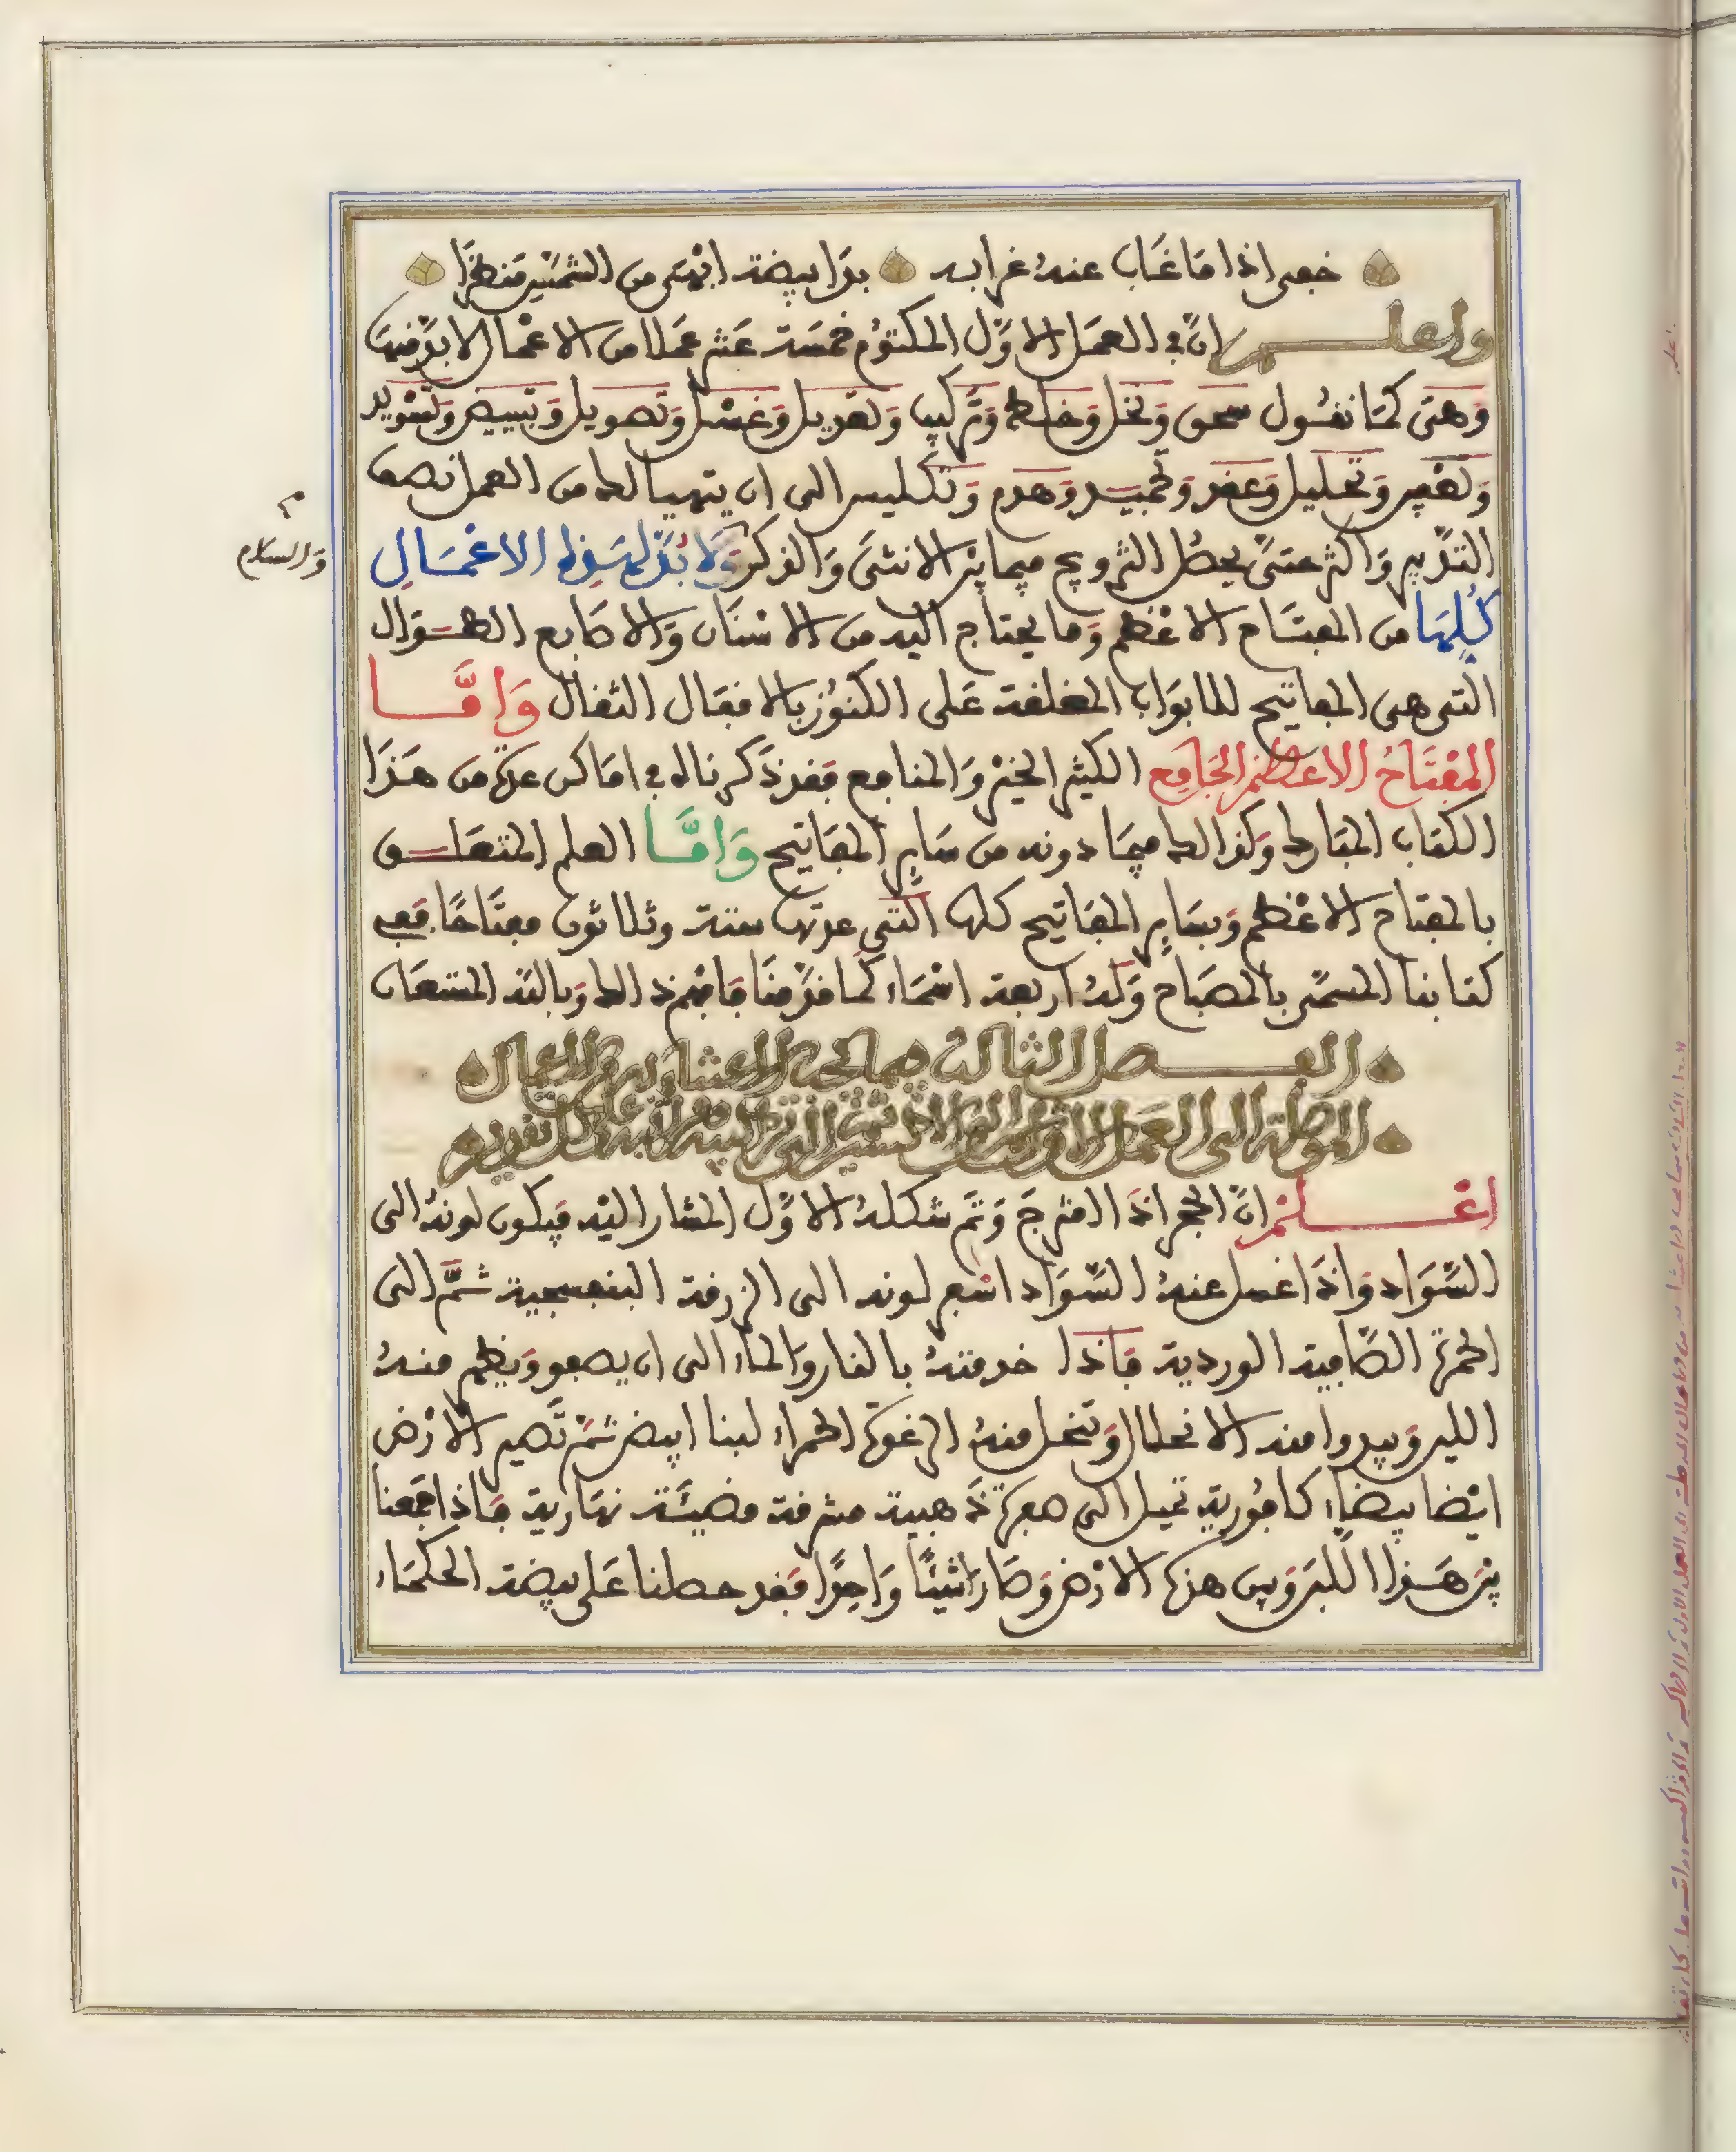 خفي اذا ما غاب عنه غرابه بدا بيضة ابهى من الشمس منظرا
واعلم ان في العمل الاول المكتوم خمسة عشر عملا من الاعمال لا بد منها
وهي كما نقول سحق ونخل وخلط وتركيب وتعديل وغسل وتصويل وتبييض وتسويد
وتقطير وتحليل وعقد وتجميد وهدم وتكليس الى ان يتهيا لك من العمل نصف
التدبير واكثر حتى يحصل التزويج فيما بين الانثى والذكر ولا بد لهذه الاعمال
كلها من المفتاح الاعظم وما يحتاج اليه من الاسنان والاصابع الطوال
التي هي المفاتيح للابواب المغلقة على الكنوز بالاقفال الثقال واما
المفتاح الاعظم الجامع الكثير الخير والمنافع فقد ذكرناه في اماكن عدة من هذا
الكتاب المبارك وكذالك فيما دونه من ساير المفاتيح واما العلم المتعلق
بالمفتاح الاعظم وبساير المفاتيح كلها التي عدتها ستة وثلاثون مفتاحا ففي
كتابنا المسمى بالمصباح وله اربعة اسماء كما قدمنا فافهم ذالك وبالله المستعان
والسلام
الفصل الثالث فيما يجب الاعتناء به من الاعمال
الموصلة الى العمل الاول
اعلم ان الحجر اذا امتزج وتم شكله الاول المشار اليه فيكون لونه الى
السواد واذا غسل عنه السواد اسفر لونه الى الزرقة البنفسجية ثم الى
الحمرة الصافية الوردية فاذا خدمته بالنار والماء الى ان يصفو ويظهر منه
اللبن ويبدوا منه الانحلال وتنحل منه الرغوة الحمراء لبنا ابيض ثم تصير الارض
ايضا بيضاء كافورية تميل الى صفرة ذهبية مشرقة مضيئة نهارية فاذا جمعنا
بين هذا اللبن وبين هذه الارض وصارا شيئا واحدا فقد حصلنا على بيضة الحكماء